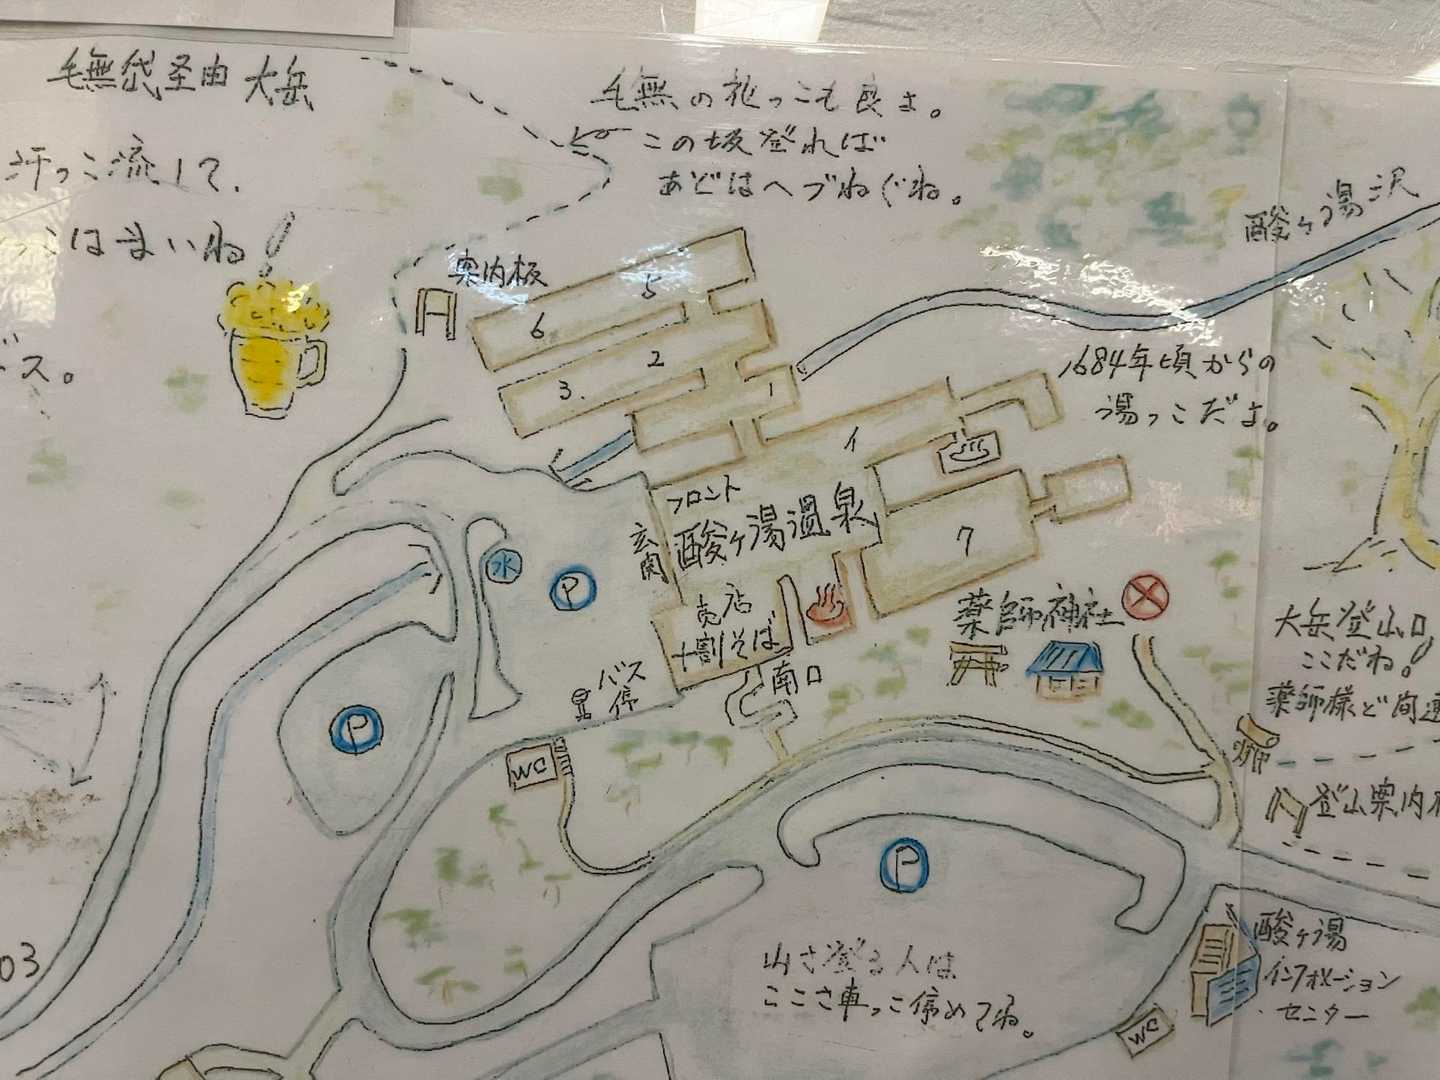 毛無岱経由大岳
毛無の花っこも良よ。
この坂登れば
あどはへづねぐね。
汗っこ流して、
こはまいね
ス。
案内板
酸ヶ湯沢
5
6
2
3.
1
1684年頃からの
湯っこだよ。
イ
フロント
酸ヶ湯温泉
玄関
7
水
P
売店
十割そば
南口
バス停
薬師神社
大岳登山口
ここだね。
薬師様ど間違
P
WC
登山案内
P
山さ登る人は
ここさ車っこ停めてね。
酸ヶ湯
インフォメーション
センター
WC
03